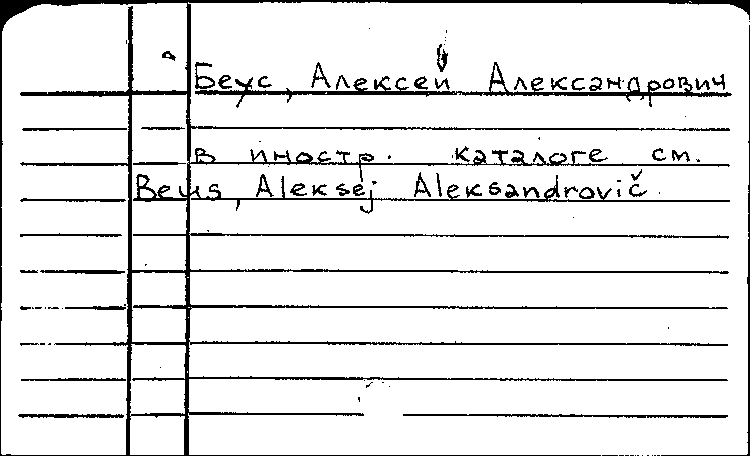 Беус, Алексей Александрович
в иностр. каталоге см.
Beus, Aleksej Aleksandrovič.